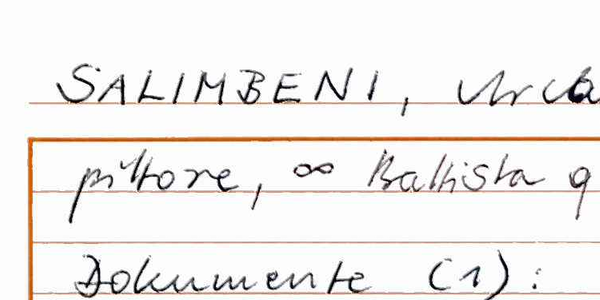 SALIMBENI,
pittore, ∞ Battista q
Dokumente (1):